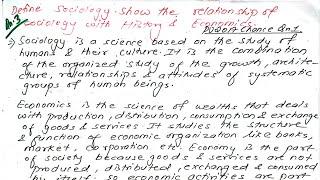 Qn.3 Define Sociology. Show the relationship of
sociology with History & Economics.
Chance Qn.1
⇒ Sociology is a science based on the study of
humans & their culture. It is the combination
of the organized study of the growth, archite-
cture, relationships & attitudes of systematic
groups of human beings.
Economics is the science of wealths that deals
with production, distribution, consumption & exchange
of goods & services. It studies the structure
& function of economic organization like books,
market, corporation etc. Economy is the part
of society because goods & services are not
produced, distributed, exchanged & consumed
by itself. So economic activities are part